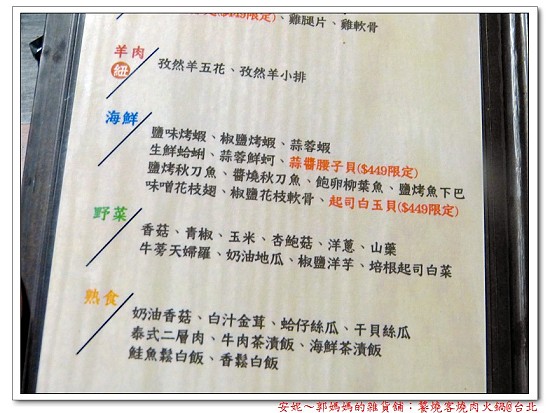 限定)、雞腿片、雞軟骨
羊肉
紐 孜然羊五花、孜然羊小排
海鮮
鹽味烤蝦、椒鹽烤蝦、蒜蓉蝦
生鮮蛤蜊、蒜蓉鮮蚵、蒜醬腰子貝($449限定)
鹽烤秋刀魚、醬燒秋刀魚、飽卵柳葉魚、鹽烤魚下巴
味噌花枝翅、椒鹽花枝軟骨、起司白玉貝($449限定)
野菜
香菇、青椒、玉米、杏鮑菇、洋蔥、山藥
牛蒡天婦羅、奶油地瓜、椒鹽洋芋、培根起司白菜
熟食
奶油香菇、白汁金茸、蛤仔絲瓜、干貝絲瓜
泰式二層肉、牛肉茶漬飯、海鮮茶漬飯
鮭魚鬆白飯、香鬆白飯
安妮～郭媽媽的雜貨舖：饗燒客燒肉火鍋@台北